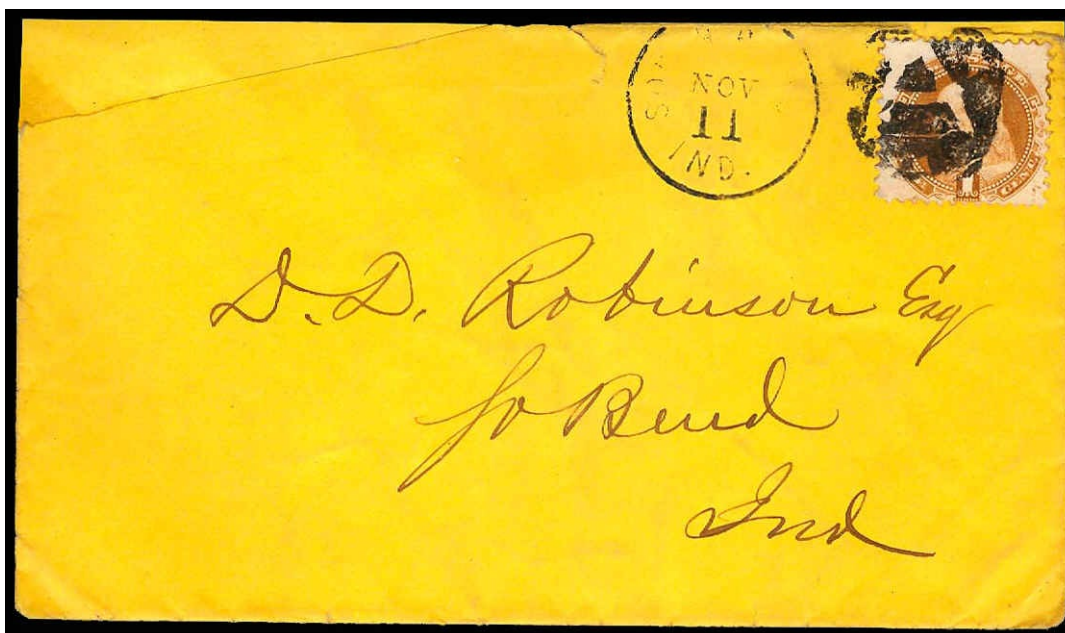 NOV
11
IND.
D. D. Robinson Esq
So Bend
Ind